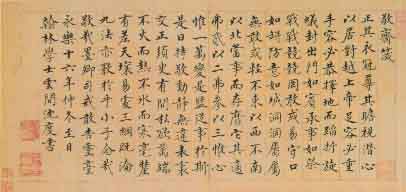 敬齋箴
正其衣冠尊其瞻視潛心
以居對越上帝足容必重
手容必恭擇地而蹈折旋
蟻封出門如賓承事如祭
戰戰兢兢罔敢或易守口
如瓶防意如城洞洞屬屬
無敢或輕不東以西不南
以北當事而存靡他其適
弗貳以二弗參以三惟心
惟一萬變是監從事於斯
是曰持敬動靜無違表裏
交正須臾有間私欲萬端
不火而熱不冰而寒毫釐
有差天壤易處三綱既淪
九法亦斁於乎小子念哉
敬哉墨卿司戒敢告靈臺
永樂十六年仲冬至日
翰林學士雲間沈度書